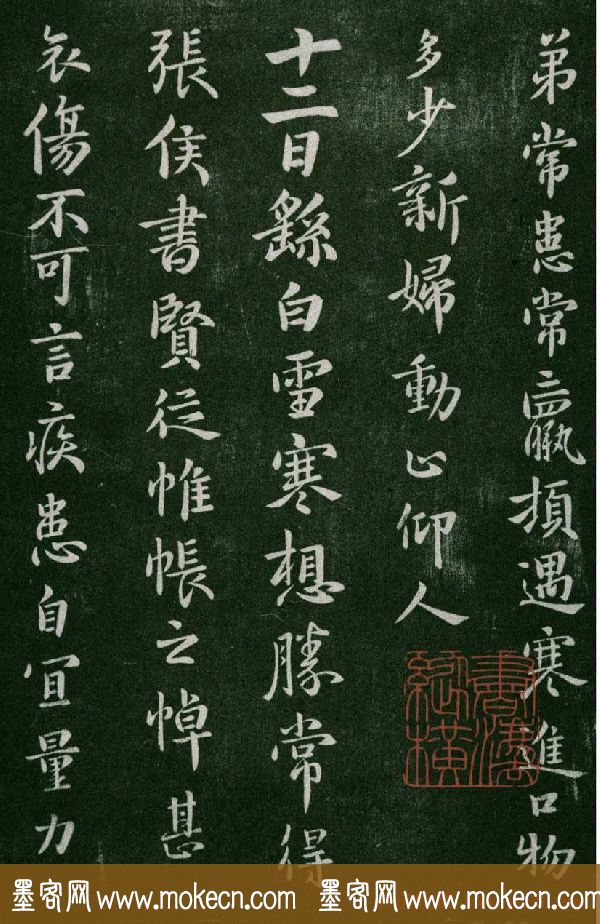 弟常患常羸頓遇寒進口物
多少新婦動止仰人
十二日繇白雪寒想勝常得
張侯書賢從帷帳之悼甚
哀傷不可言疾患自宜量力
書法
縱橫
墨客网 www.mokecn.com 墨客网 www.mokecn.com